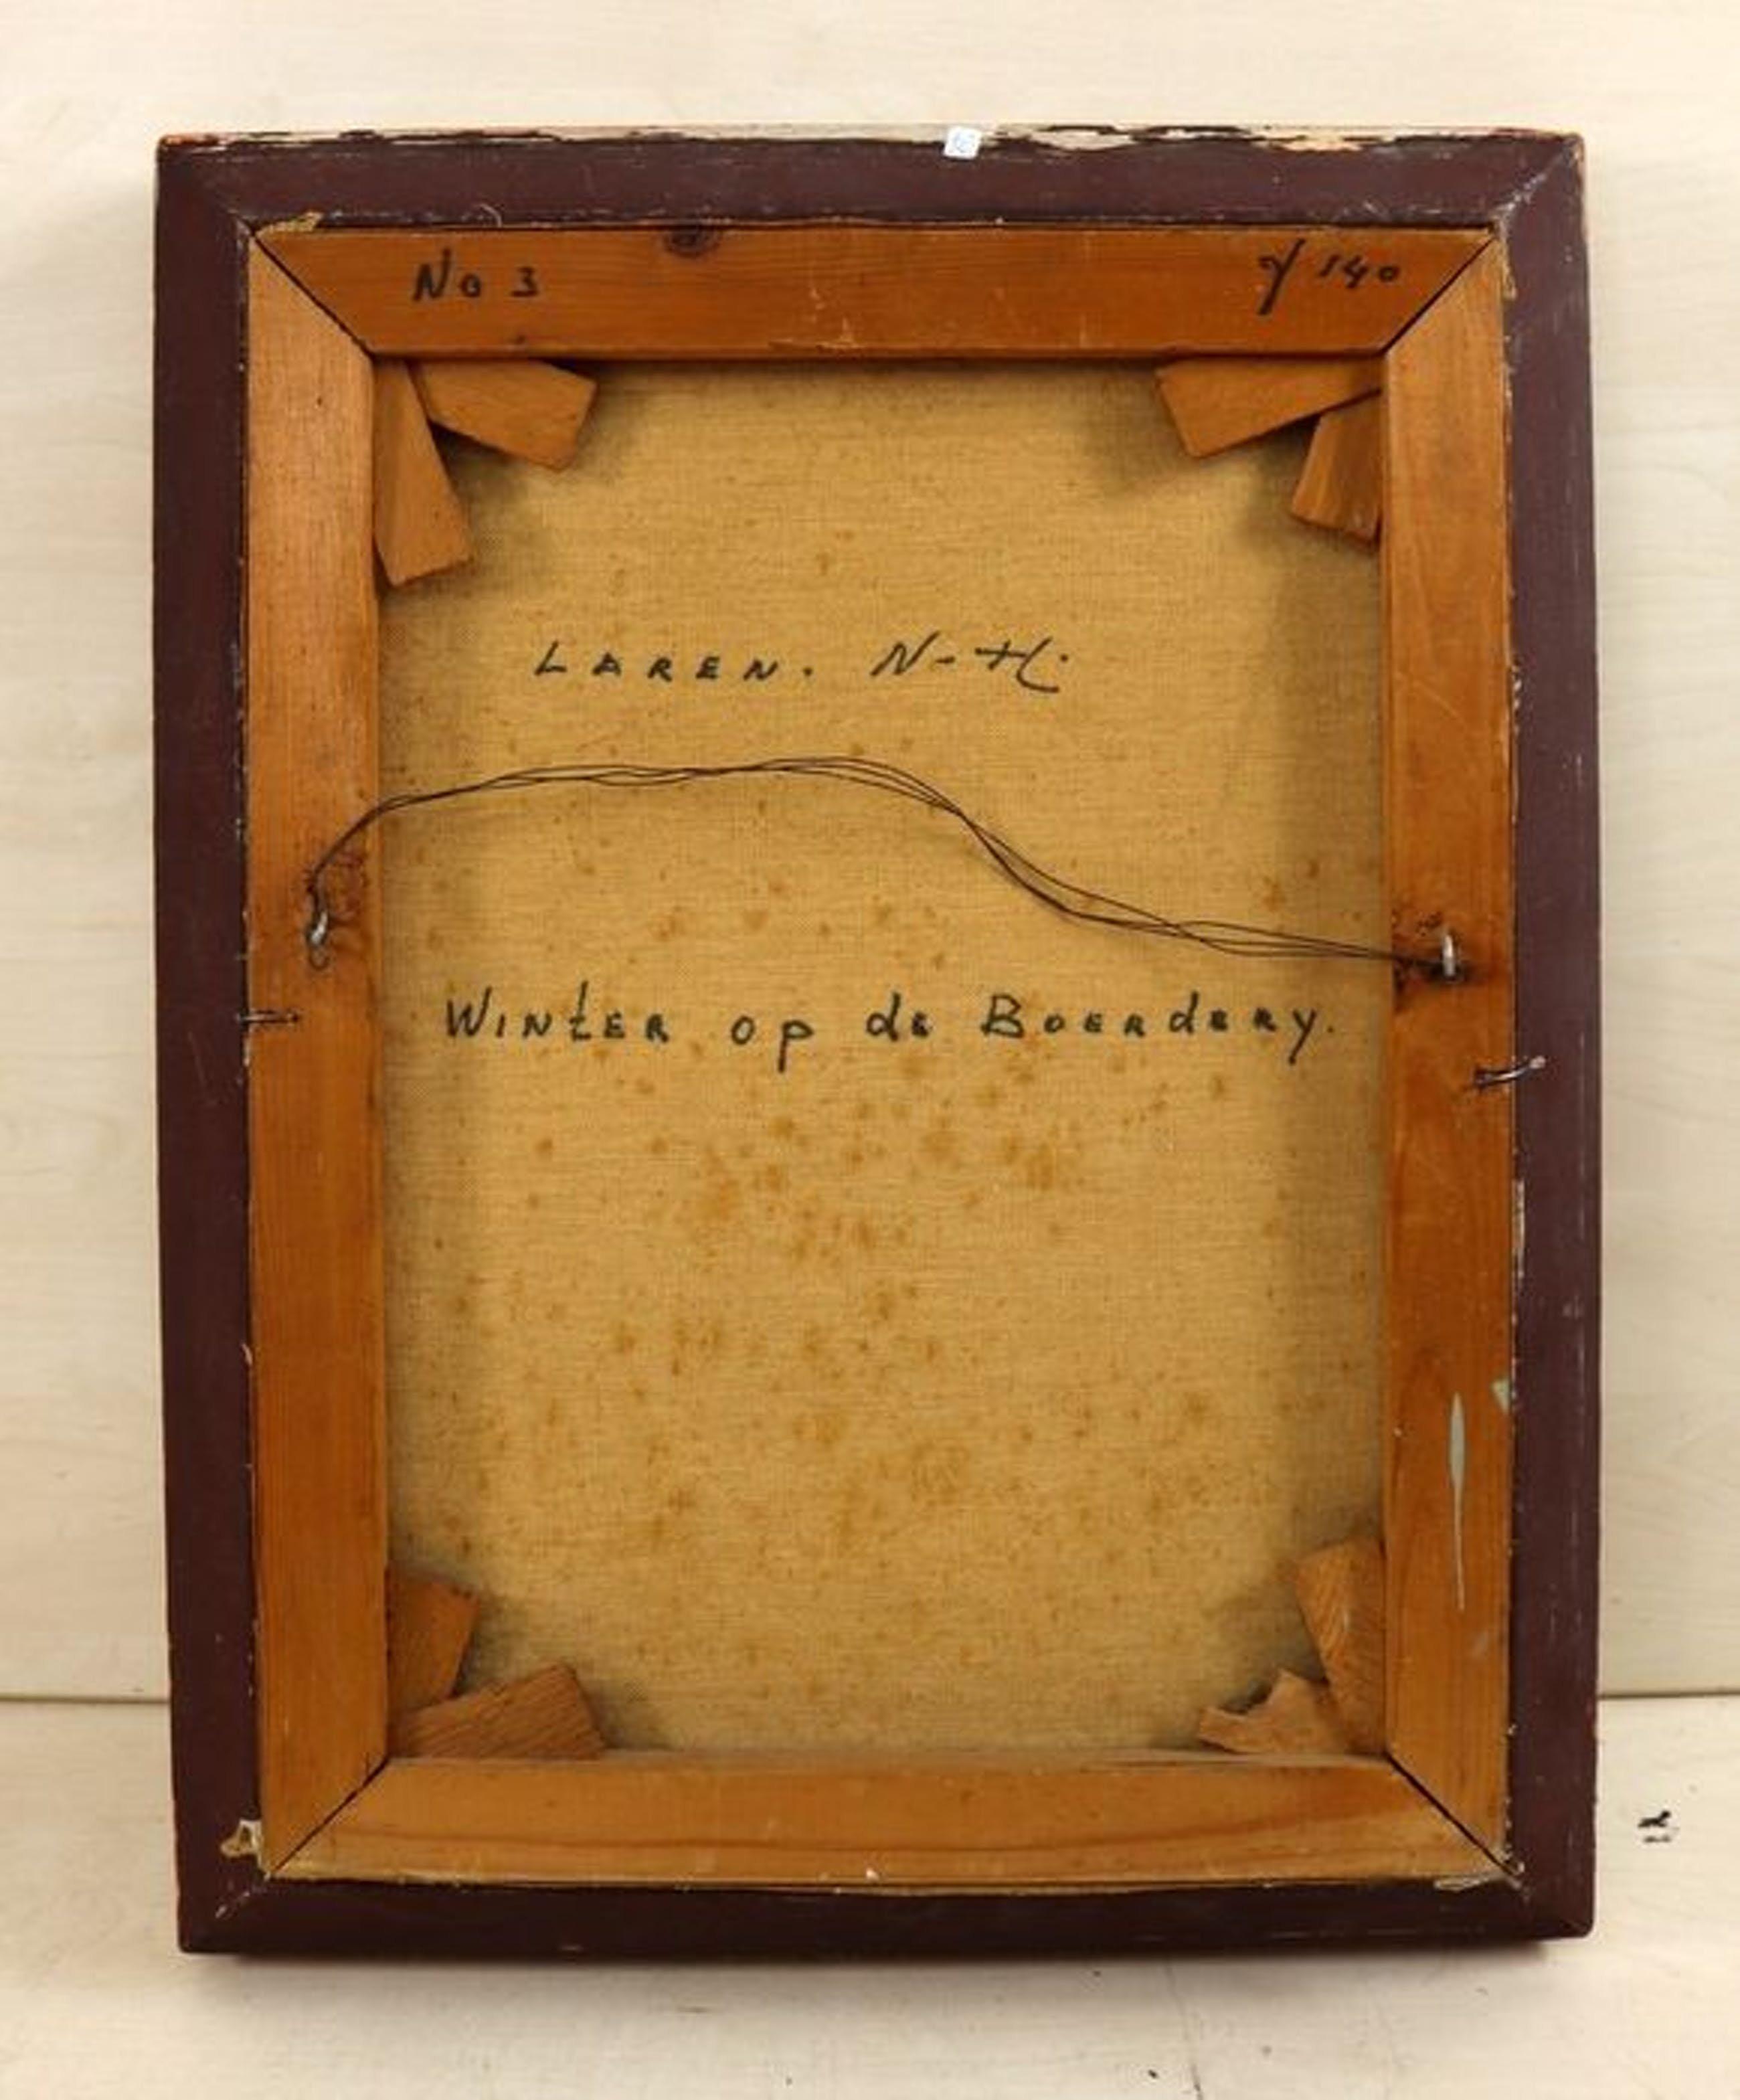 No 3
140
LAREN. N-H.
WINTER op de BOERdERy.